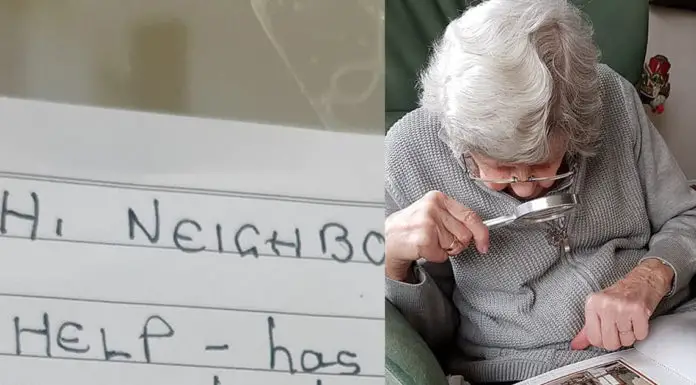 HI NEIGHBO
HELP - has